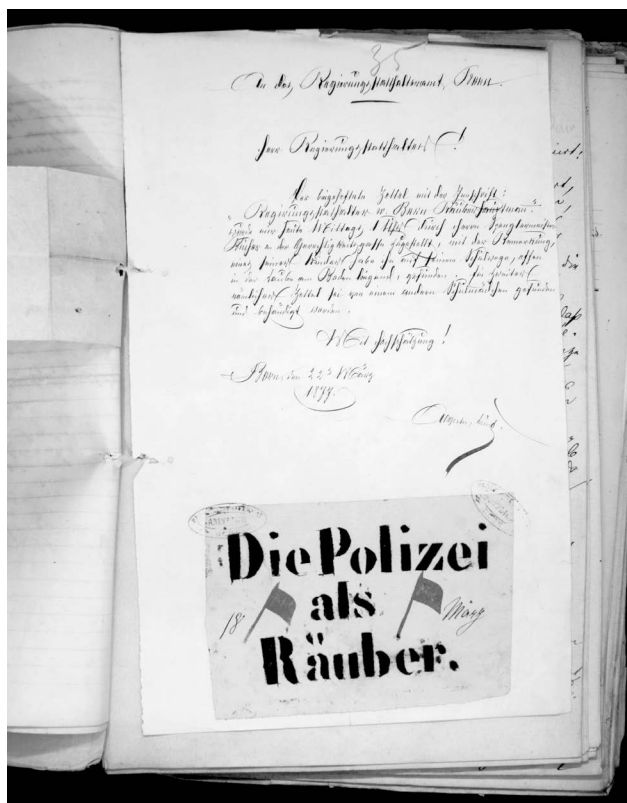 35
An das Regierungsstatthalteramt, Bern.
Herr Regierungsstatthalter!
Der beigeheftete Zettel mit der Inschrift:
"Regierungsstatthalter v. Bern Räuberhauptmann"
wurde mir heute Mittags, 1 Uhr durch Herrn
an der Gerechtigkeitsgasse zugestellt, mit der Bemerkung,
eines seiner Kinder habe ihn auf seinem Schulwege, offen
in der Laube am Boden liegend, gefunden. Ein zweiter
Zettel sei von einem andern Schulmädchen gefunden
und behändigt worden.
Mit Hochschätzung!
Bern, den 22ten März
1877.
Die Polizei
als
18 März
Räuber.